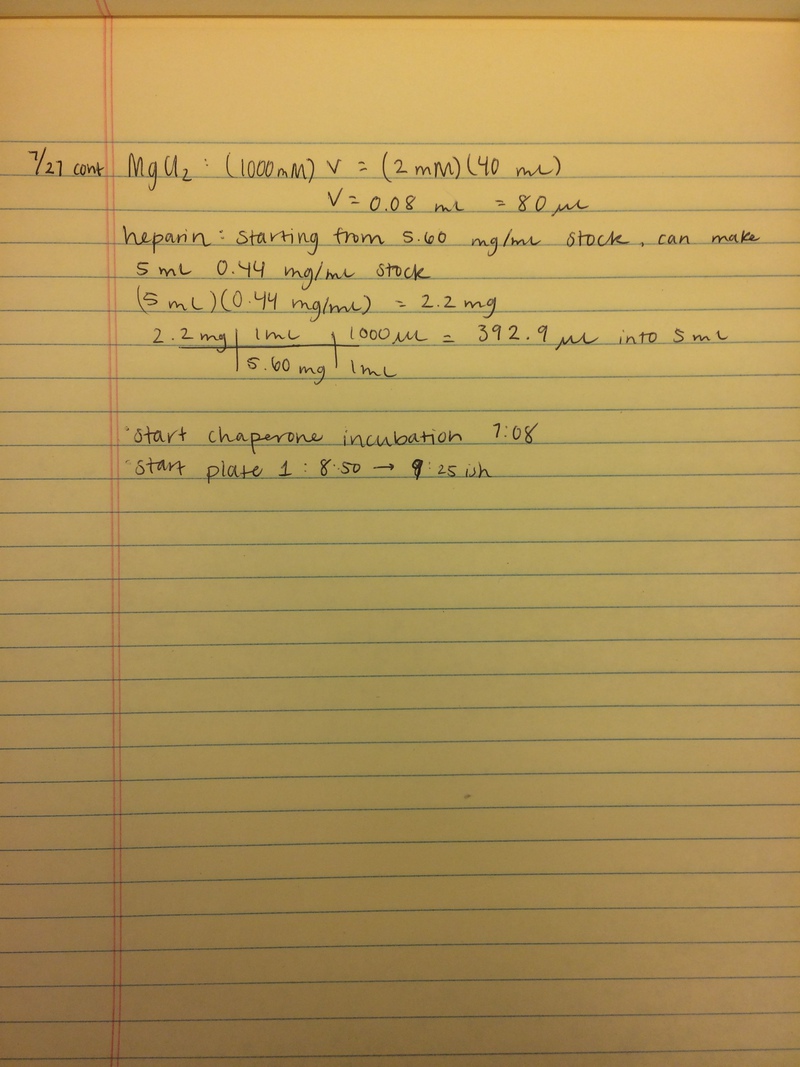 7/27 cont MgCl2 : (1000mM) V = (2 mM)(40 mL)
V = 0.08 mL = 80 µL
heparin : starting from 5.60 mg/mL stock, can make
5 mL 0.44 mg/mL stock
(5 mL)(0.44 mg/mL) = 2.2 mg
2.2 mg | 1mL | 1000 µL = 392.9 µL into 5 mL
| 5.60 mg | 1mL
·start chaperone incubation 7:08
·start plate 1 : 8:50 → 9:25 ish